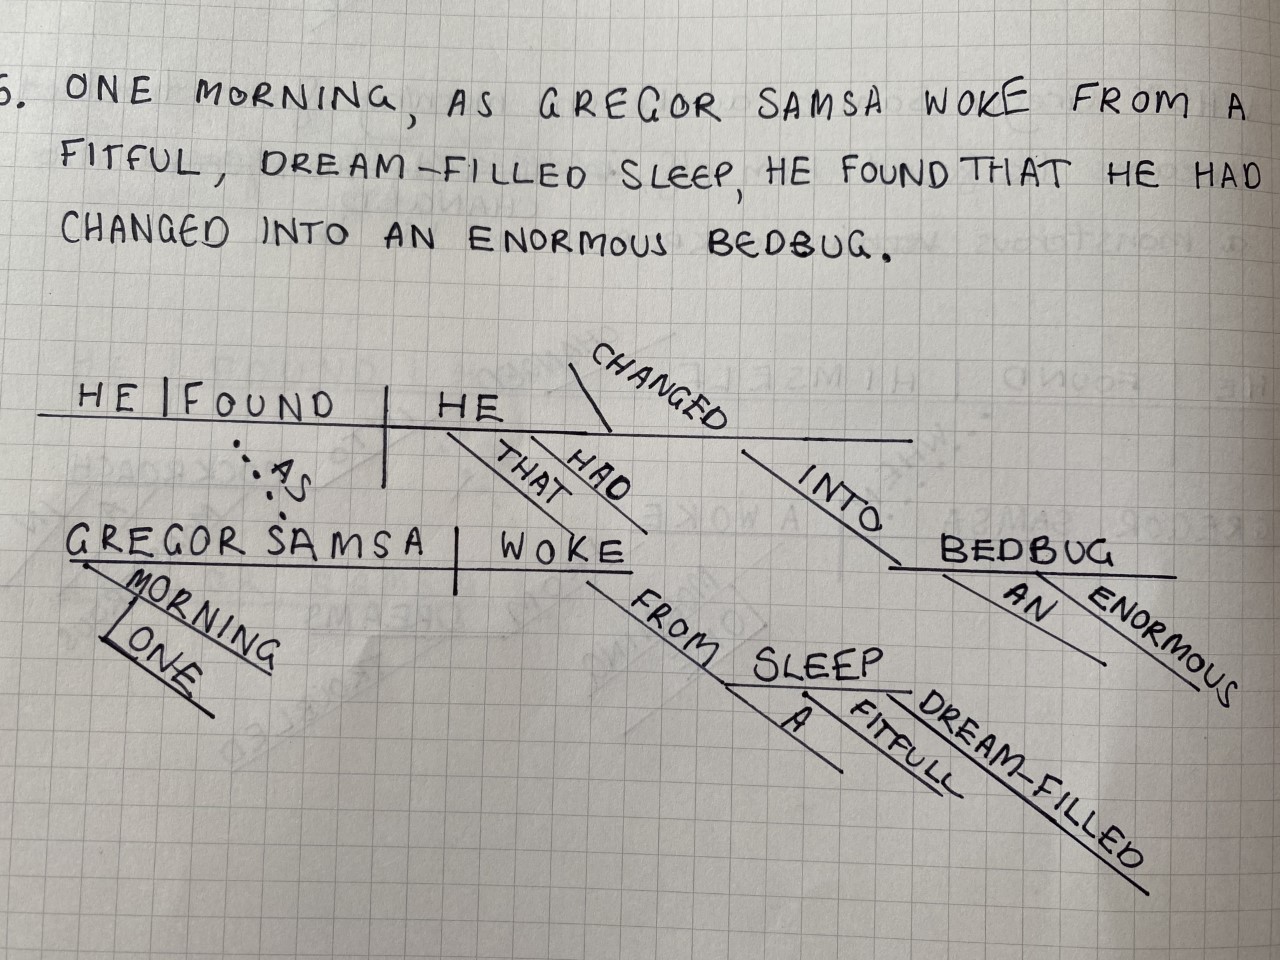 5. ONE MORNING, AS GREGOR SAMSA WOKE FROM A
FITFUL, DREAM-FILLED SLEEP, HE FOUND THAT HE HAD
CHANGED INTO AN ENORMOUS BEDBUG.
CHANGED
HE FOUND HE
THAT HAD INTO
AS
GREGOR SAMSA WOKE BEDBUG
MORNING FROM AN ENORMOUS
ONE SLEEP
A FITFULL DREAM-FILLED